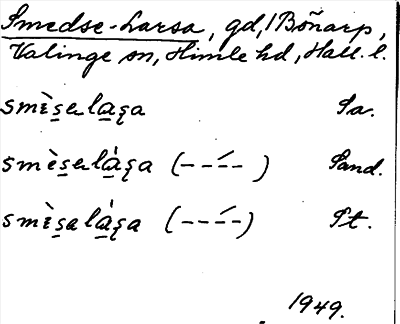 Smedse-Larsa, gd, 1 Boñarp,
Valinge sn, Himle hd, Hall. l.
smèse̱la̱ʂa Sa.
smèse̱là̱ʂa (- - -́ - ) Sand.
smìsa̱là̱ʂa (- - -́ -) St.
1949.